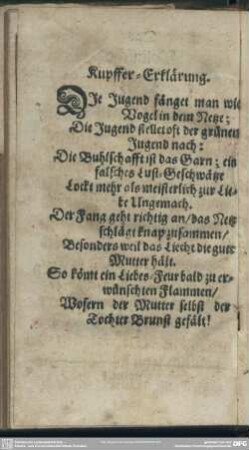 Kupffer-Erklärung.
DIe Jugend fänget man wie
Vogel in dem Netze;
Die Jugend stellet oft der grünen
Jugend nach:
Die Buhlschafft ist das Garn; ein
falsches Lust-Geschwätze
Lockt mehr als meisterlich zur Lie-
be Ungemach.
Der Fang geht richtig an/ das Netz
schlägt knap zusammen/
Besonders weil das Liecht die gute
Mutter hält.
So könt ein Liebes-Feur bald zu er-
wünschten Flammen/
Wofern der Mutter selbst der
Tochter Brunst gefält!